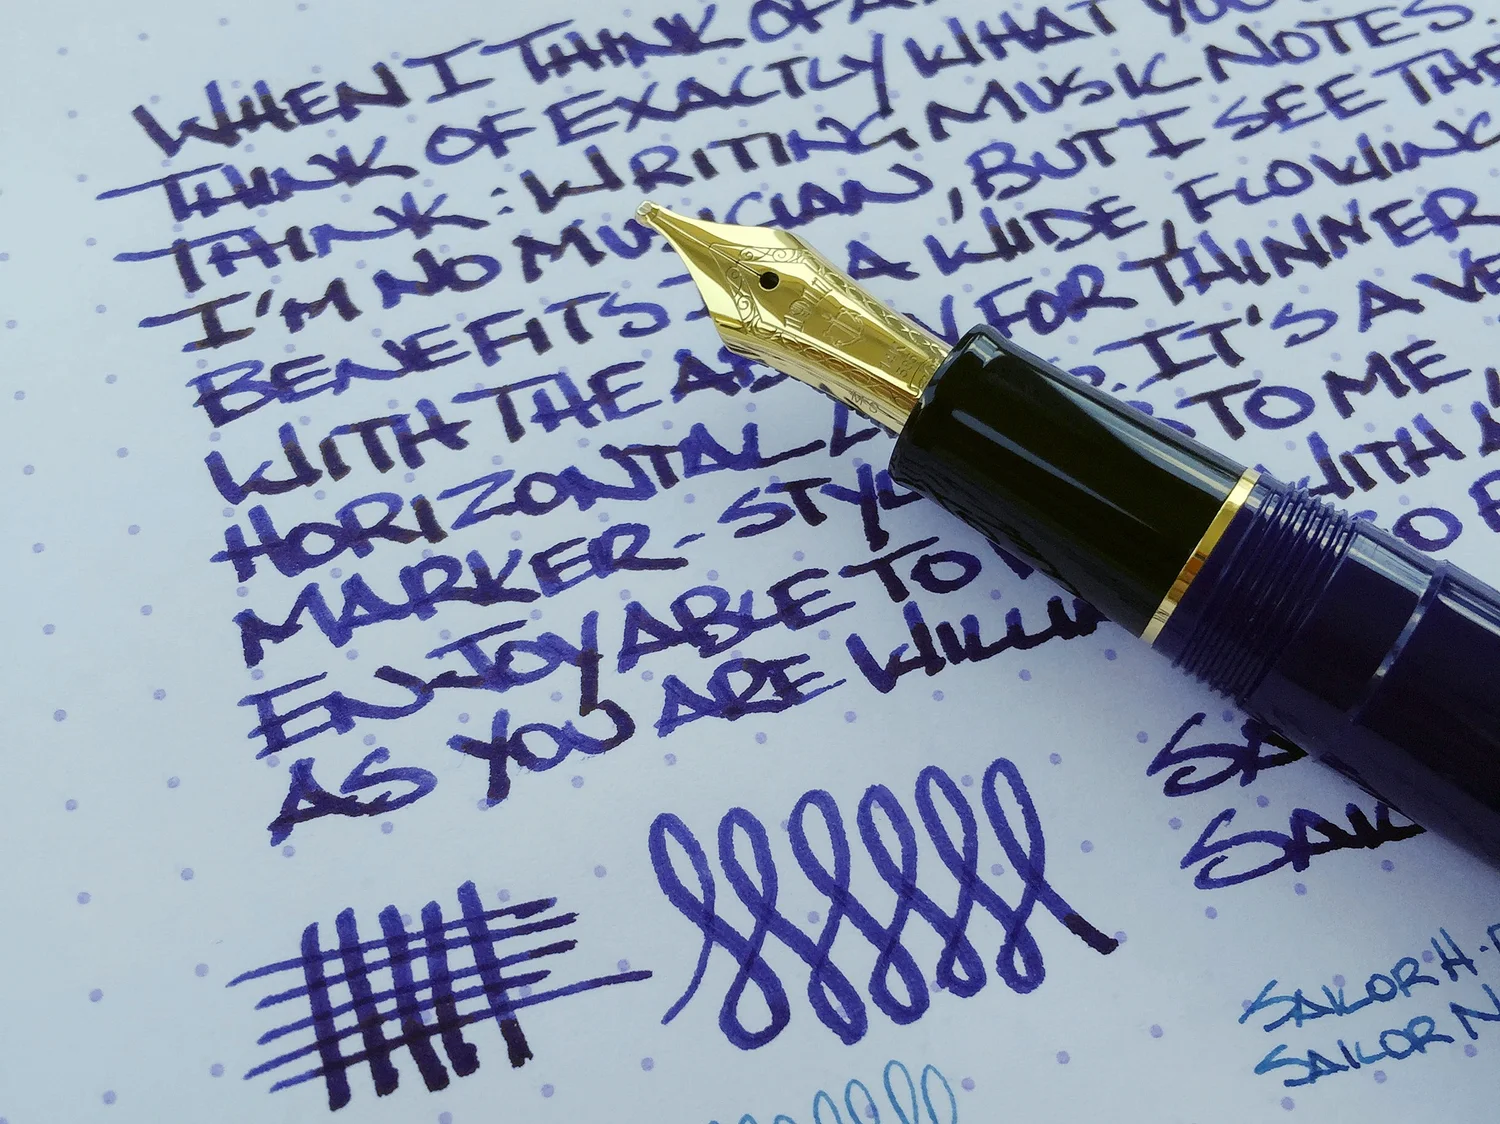 WHEN I THINK OF A
THINK OF EXACTLY WHAT YOU
THINK: WRITING MUSIC NOTES.
I'M NO MUSICIAN, BUT I SEE THE
BENEFITS A WIDE, FLOWING
WITH THE FOR THINNER
HORIZONTAL IT'S A VE
MARKER-STYL TO ME,
ENJOYABLE TO WITH
AS YOU ARE WILLIN SO
SA
SAIL
SAILOR H-
SAILOR N
1911
14K
585
M-S